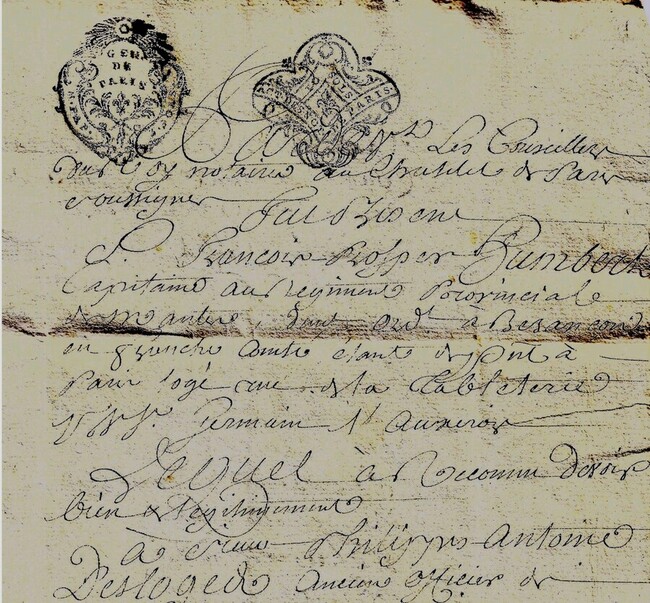 GEN.
DE
PARIS
PARIS.
Les Conseillers
du Roy notaires au Chatelet de Paris
soussignes Fut Present
S. François Prosper Humbert
Capitaine au Regiment Provinciale
de Mantes, dent ord.t à Besancon
en franche Comté étant de pnt à
Paris logé rue de la Tableterie
psse St. Germain l'Auxerois
Lequel à Reconnu devoir
bien & legitimement
à Sieur Philippes Antoine
Desloges ancien officier de